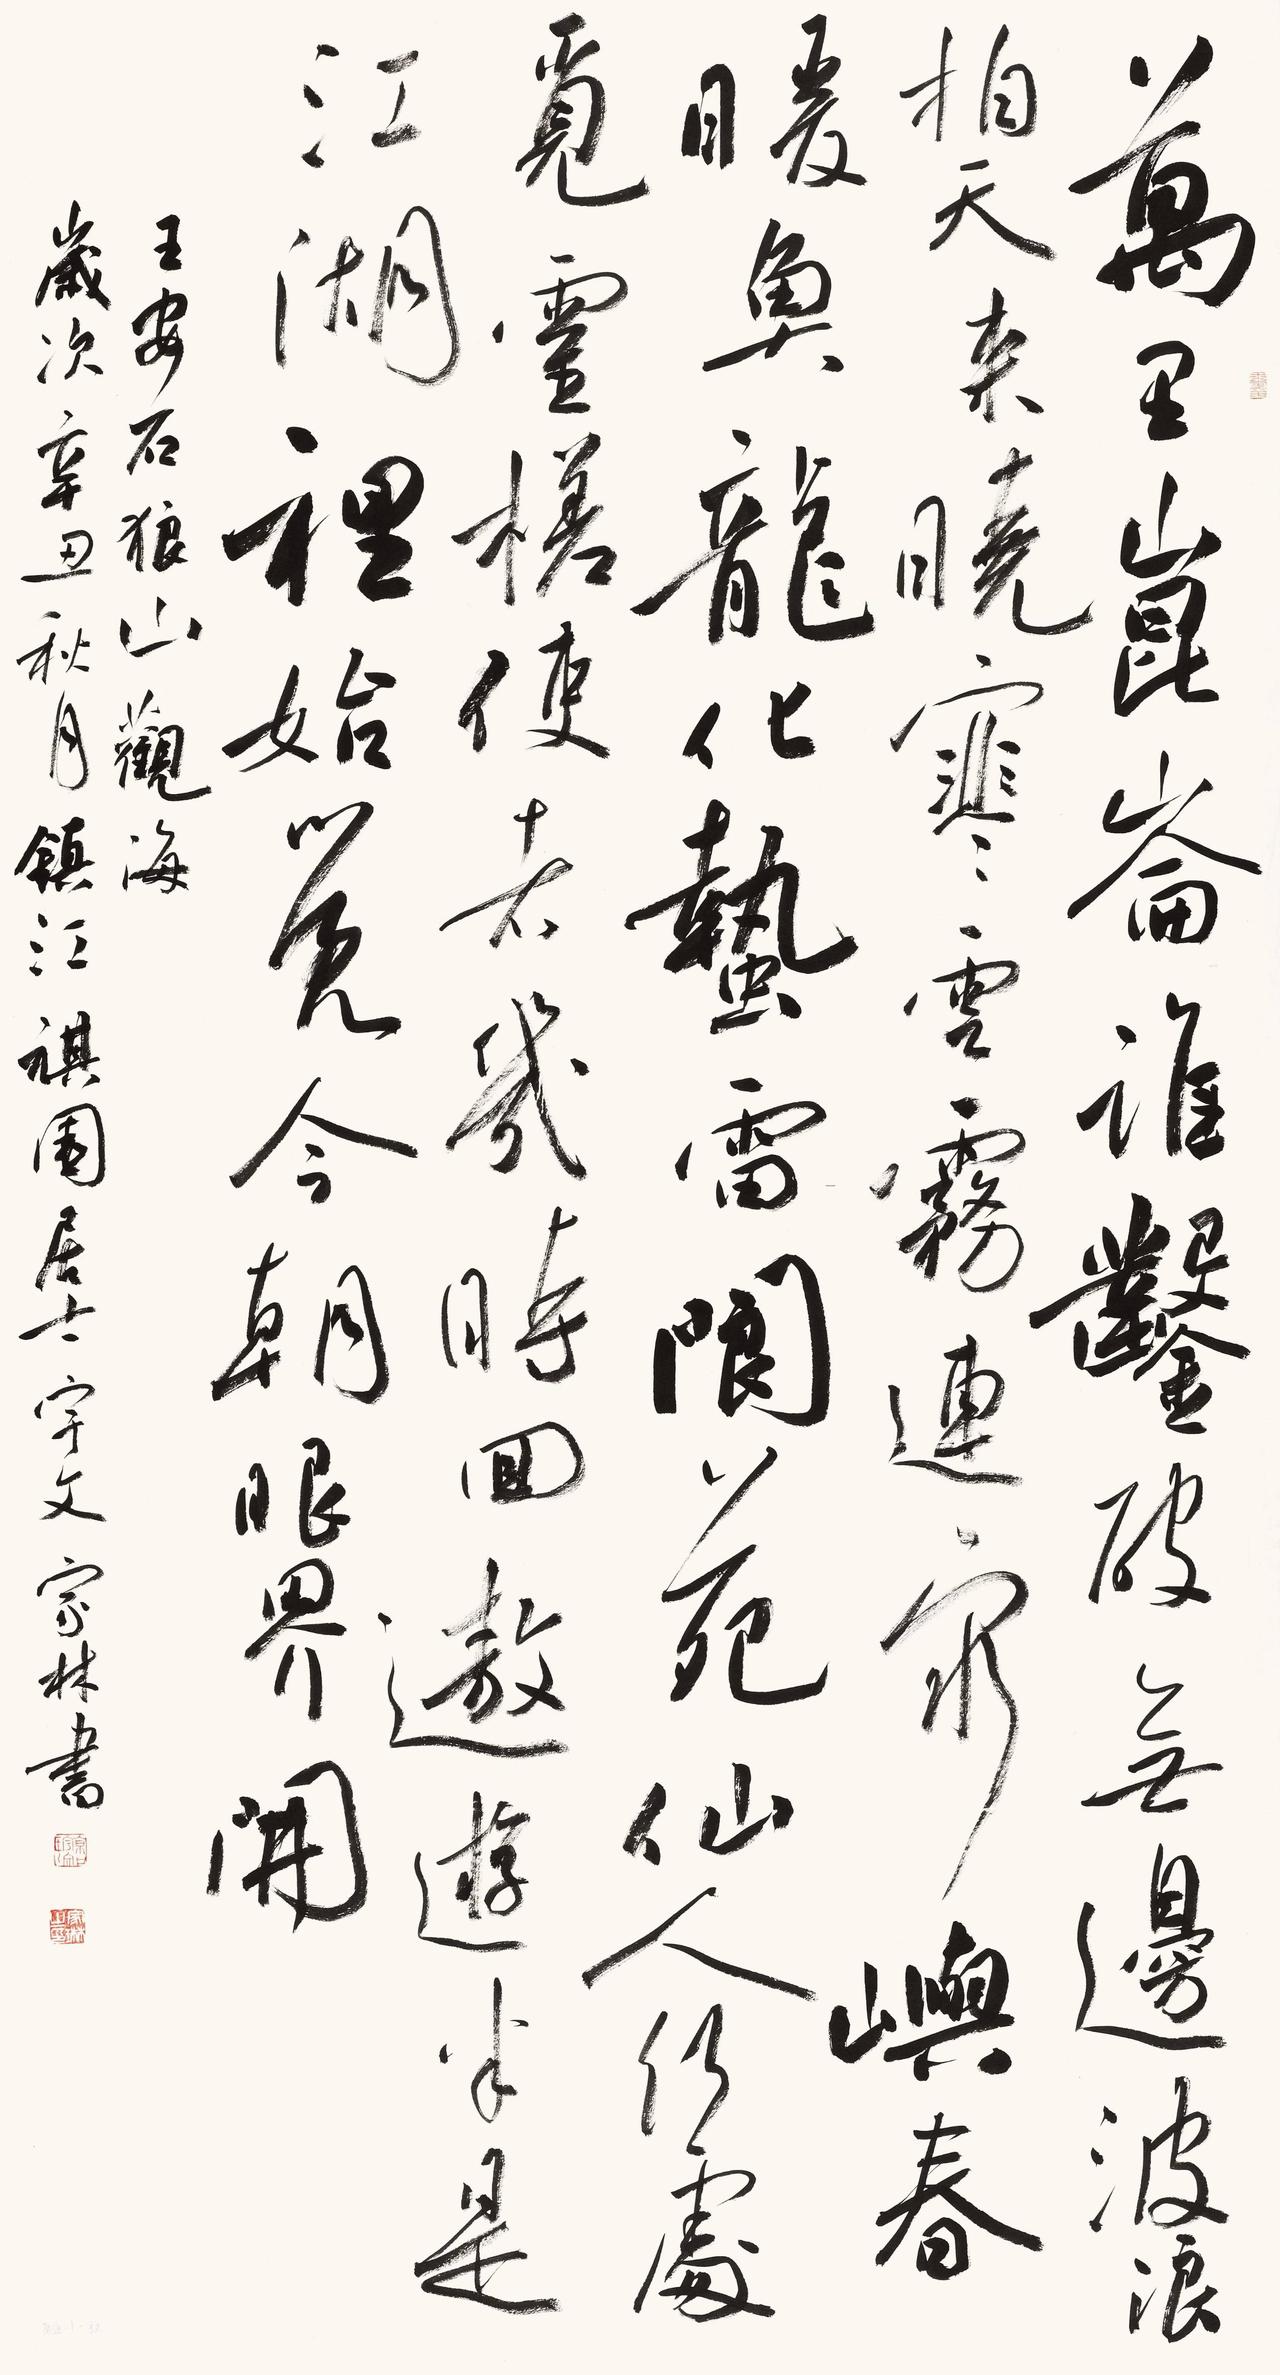 萬里崑崙誰鑿破無邊波浪
拍天來曉寒雲霧連窮嶼春
暖魚龍化蟄雷閬苑仙人何處
覓靈槎使者幾時回遨遊半是
江湖裡始覺今朝眼界開
王安石狼山觀海
歲次辛丑秋月鎮江祺園居士宇文家林書